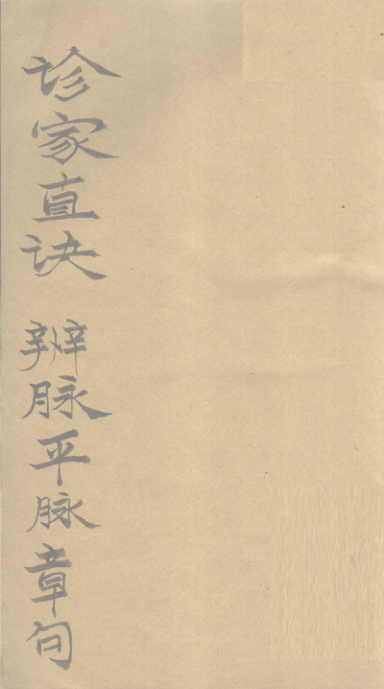 诊家直诀 辨脉平脉章句